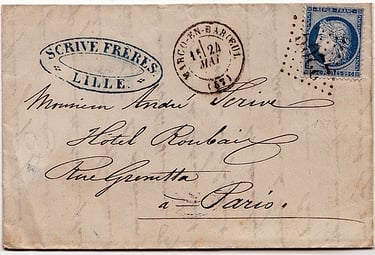 SCRIVE FRÈRES
LILLE.
MARCQ-EN-BARŒUL
24
MAI
(57)
REPUB. FRANC.
Monsieur André Scrive
Hotel Roubaix
Rue Grenetta
à Paris.